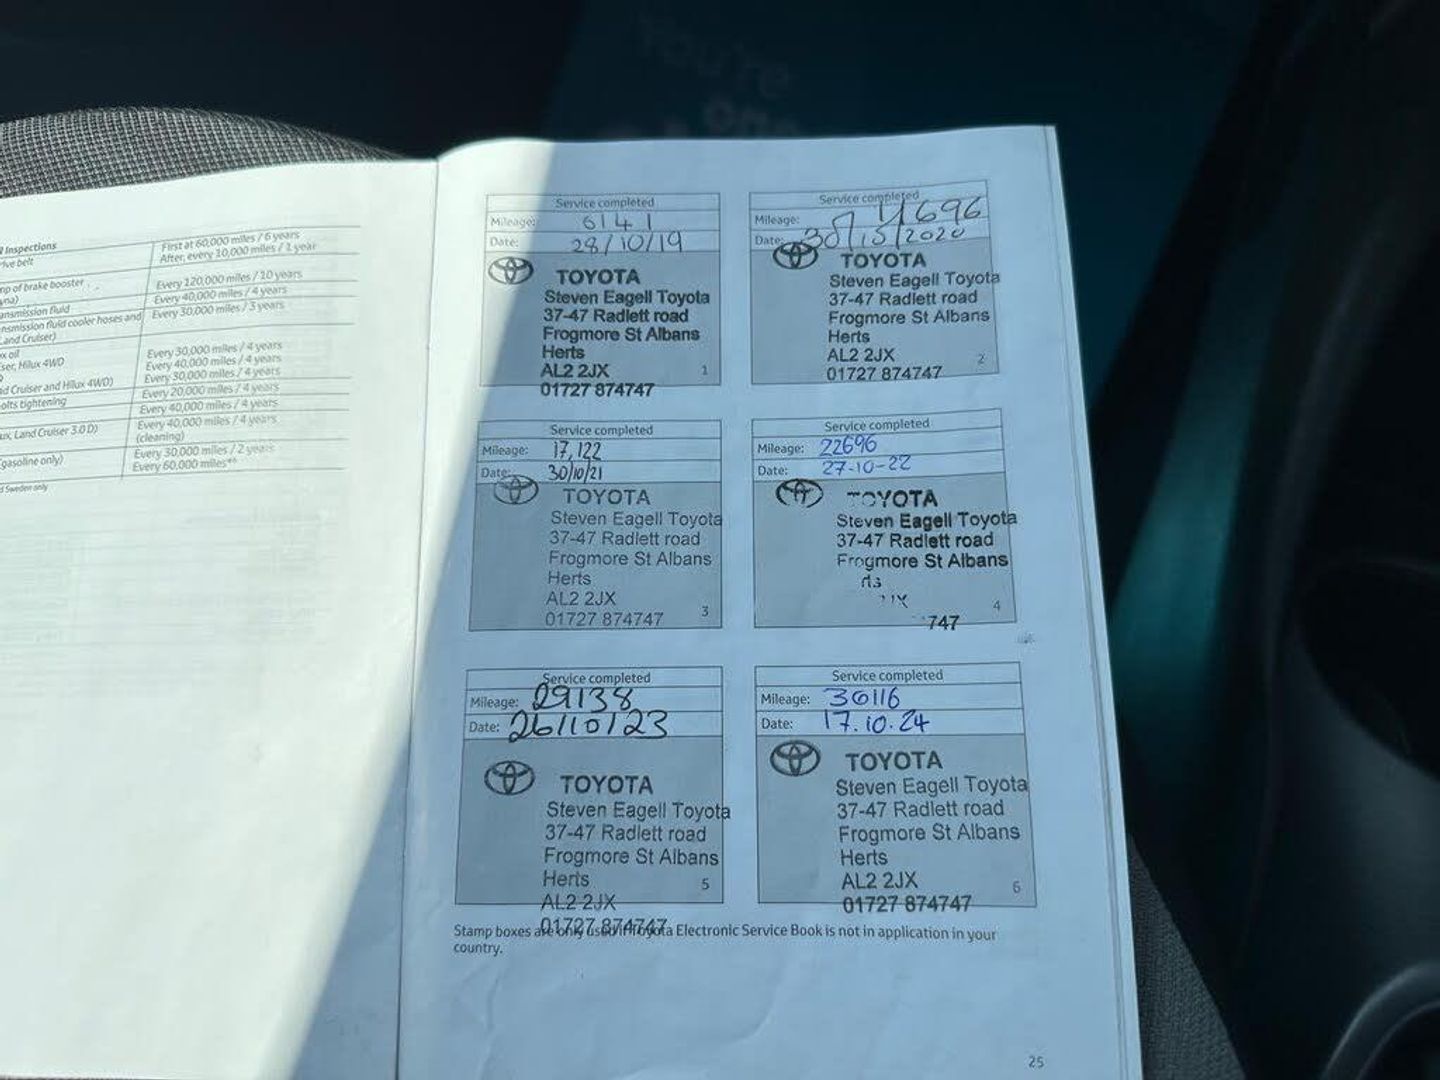 You're
one
l Inspections
First at 60,000 miles / 6 years
ive belt
After, every 10,000 miles / 1 year
mp of brake booster
yna)
Every 120,000 miles / 10 years
ansmission fluid
Every 40,000 miles / 4 years
nsmission fluid cooler hoses and
and Cruiser)
Every 30,000 miles / 3 years
x oil
Every 30,000 miles / 4 years
ser, Hilux 4WD
Every 40,000 miles / 4 years
Every 30,000 miles / 4 years
d Cruiser and Hilux 4WD)
Every 20,000 miles / 4 years
olts tightening
Every 40,000 miles / 4 years
ux, Land Cruiser 3.0 D)
Every 40,000 miles / 4 years
(cleaning)
gasoline only)
Every 30,000 miles / 2 years
Every 60,000 miles
d Sweden only
Service completed
Mileage: 6141
Date: 28/10/19
TOYOTA
Steven Eagell Toyota
37-47 Radlett road
Frogmore St Albans
Herts
AL2 2JX
01727 874747
1
Service completed
Mileage: 11696
Date: /2020
TOYOTA
Steven Eagell Toyota
37-47 Radlett road
Frogmore St Albans
Herts
AL2 2JX
01727 874747
2
Service completed
Mileage: 17,122
Date: 30/10/21
TOYOTA
Steven Eagell Toyota
37-47 Radlett road
Frogmore St Albans
Herts
AL2 2JX
01727 874747
3
Service completed
Mileage: 22696
Date: 27-10-22
TOYOTA
Steven Eagell Toyota
37-47 Radlett road
Frogmore St Albans
rts
JX
747
4
Service completed
Mileage: 29138
Date: 26/10/23
TOYOTA
Steven Eagell Toyota
37-47 Radlett road
Frogmore St Albans
Herts
AL2 2JX
01727 874747
5
Service completed
Mileage: 36116
Date: 17.10.24
TOYOTA
Steven Eagell Toyota
37-47 Radlett road
Frogmore St Albans
Herts
AL2 2JX
01727 874747
6
Stamp boxes are only used if Toyota Electronic Service Book is not in application in your
country.
25